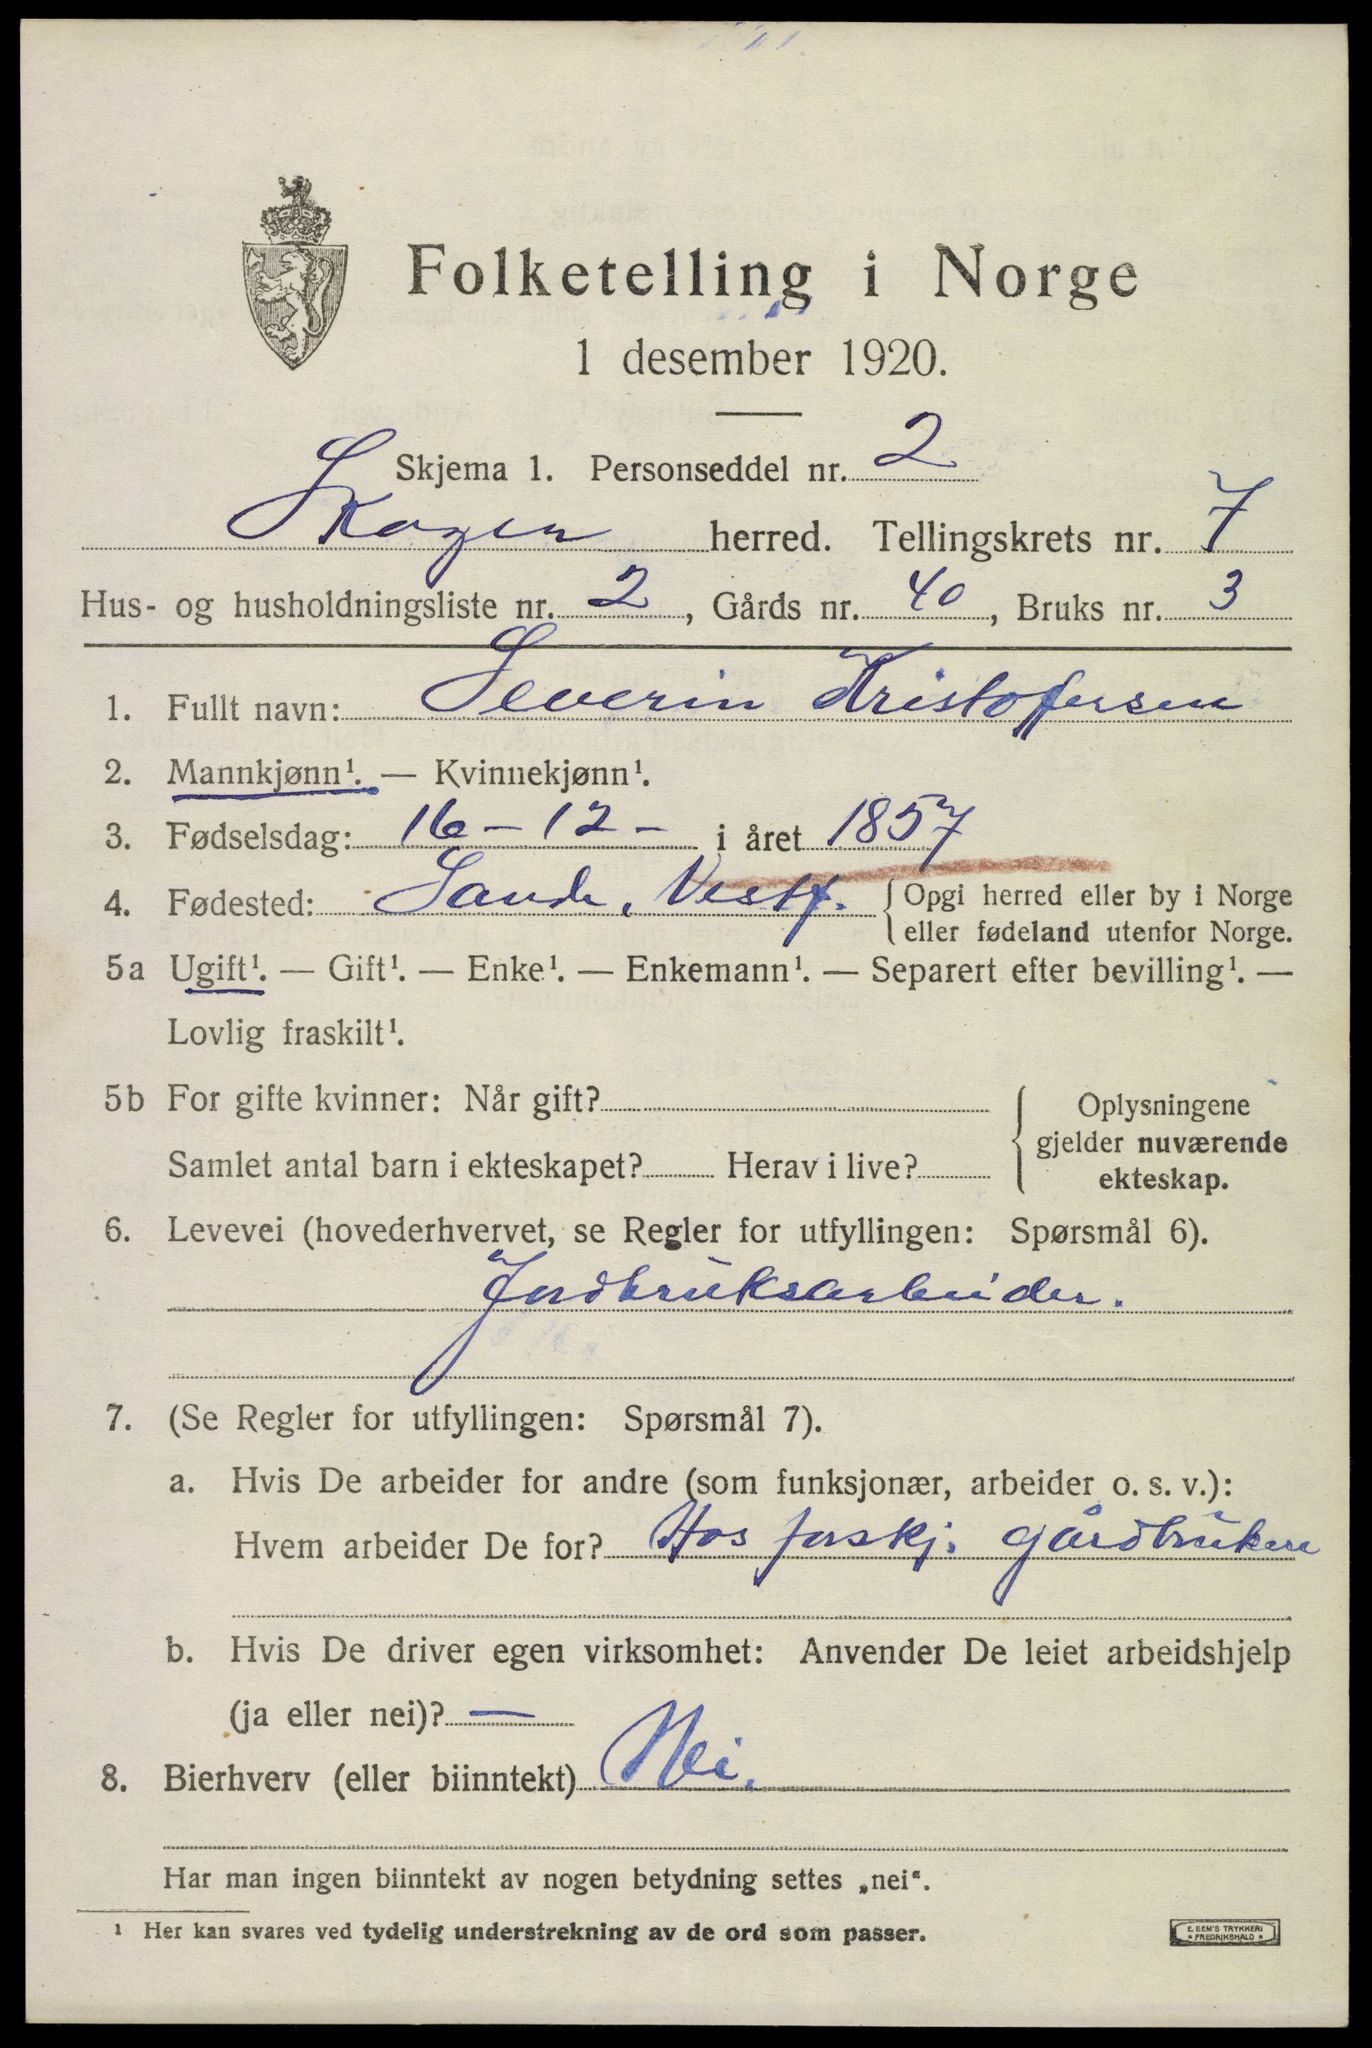 Folketelling i Norge
1 desember 1920.
Skjema 1. Personseddel nr. 2
Skoger herred. Tellingskrets nr. 7
Hus- og husholdningsliste nr. 2, Gårds nr. 40, Bruks nr. 3
1. Fullt navn: Severin Kristoffersen
2. Mannkjønn¹. — Kvinnekjønn¹.
3. Fødselsdag: 16 - 12 - i året 1857
4. Fødested: Sande, Vestf. { Opgi herred eller by i Norge
eller fødeland utenfor Norge.
5a Ugift¹. — Gift¹. — Enke¹. — Enkemann¹. — Separert efter bevilling¹. —
Lovlig fraskilt¹.
5b For gifte kvinner: Når gift?
Samlet antal barn i ekteskapet? Herav i live?
{ Oplysningene
gjelder nuværende
ekteskap.
6. Levevei (hovederhvervet, se Regler for utfyllingen: Spørsmål 6).
Jordbruksarbeider.
7. (Se Regler for utfyllingen: Spørsmål 7).
a. Hvis De arbeider for andre (som funksjonær, arbeider o. s. v.):
Hvem arbeider De for? Hos forskj. gårdbrukere
b. Hvis De driver egen virksomhet: Anvender De leiet arbeidshjelp
(ja eller nei)? —
8. Bierhverv (eller biinntekt) Nei.
Har man ingen biinntekt av nogen betydning settes „nei“.
¹ Her kan svares ved tydelig understrekning av de ord som passer.
E. SEM'S TRYKKERI
• FREDRIKSHALD •